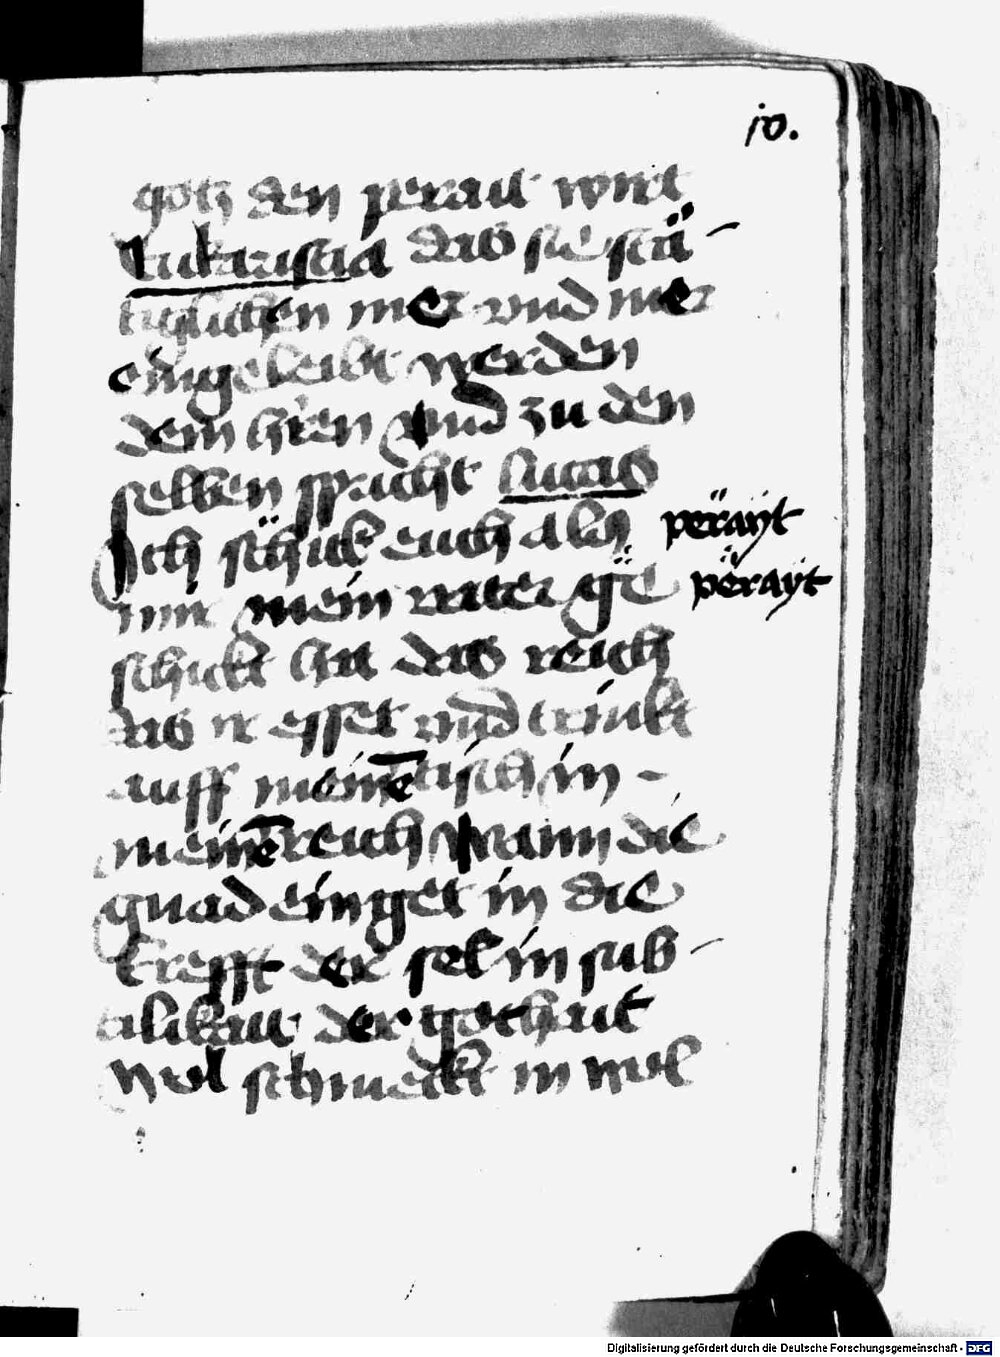 10.
gotz den perait wirt
Eukaristia das sie stä-
tiglichen mer vnd mer
eingeleibt werden
dem hren vnd zu den
selben spricht lucas
Ich schick euch als peräyt
mir mein vater ge peräyt
schickt hat das reich
das ir esset vnd trinkt
auff meinē tisch in -
meinē reich Wann die
gnad einget in die
krefft der sel in sub-
tilikait der gothait
wol schmeckt in wol
Digitalisierung gefördert durch die Deutsche Forschungsgemeinschaft - DFG